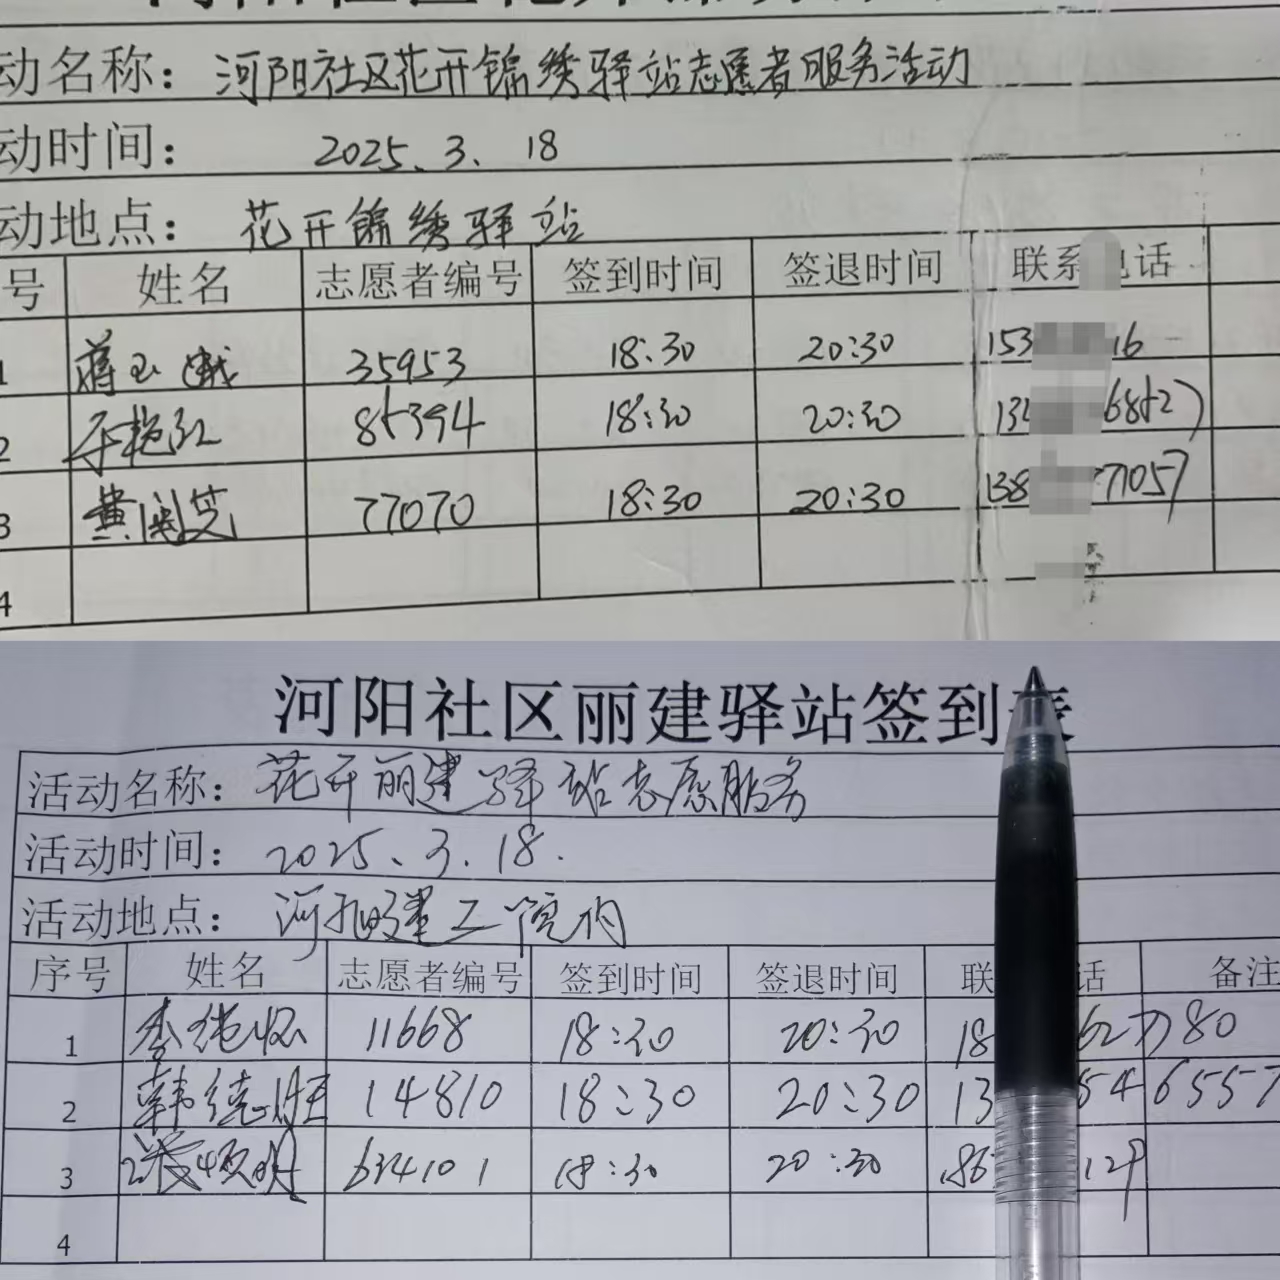 动名称：河阳社区花开锦绣驿站志愿者服务活动
动时间：2025.3.18
动地点：花开锦绣驿站
号 姓名 志愿者编号 签到时间 签退时间 联系 话
1 蒋玉娥 35953 18:30 20:30 153 16
2 艳红 85394 18:30 20:30 13 6852
3 黄 芝 77070 18:30 20:30 138 77057
4
河阳社区丽建驿站签到表
活动名称：花开丽建驿站志愿服务
活动时间：2025.3.18.
活动地点：河阳建工院内
序号 姓名 志愿者编号 签到时间 签退时间 联 话 备注
1 李 怀 11668 18:30 20:30 18 62780
2 韩德旺 14810 18:30 20:30 13 546557
3 明 634101 18:30 20:30 186 129
4